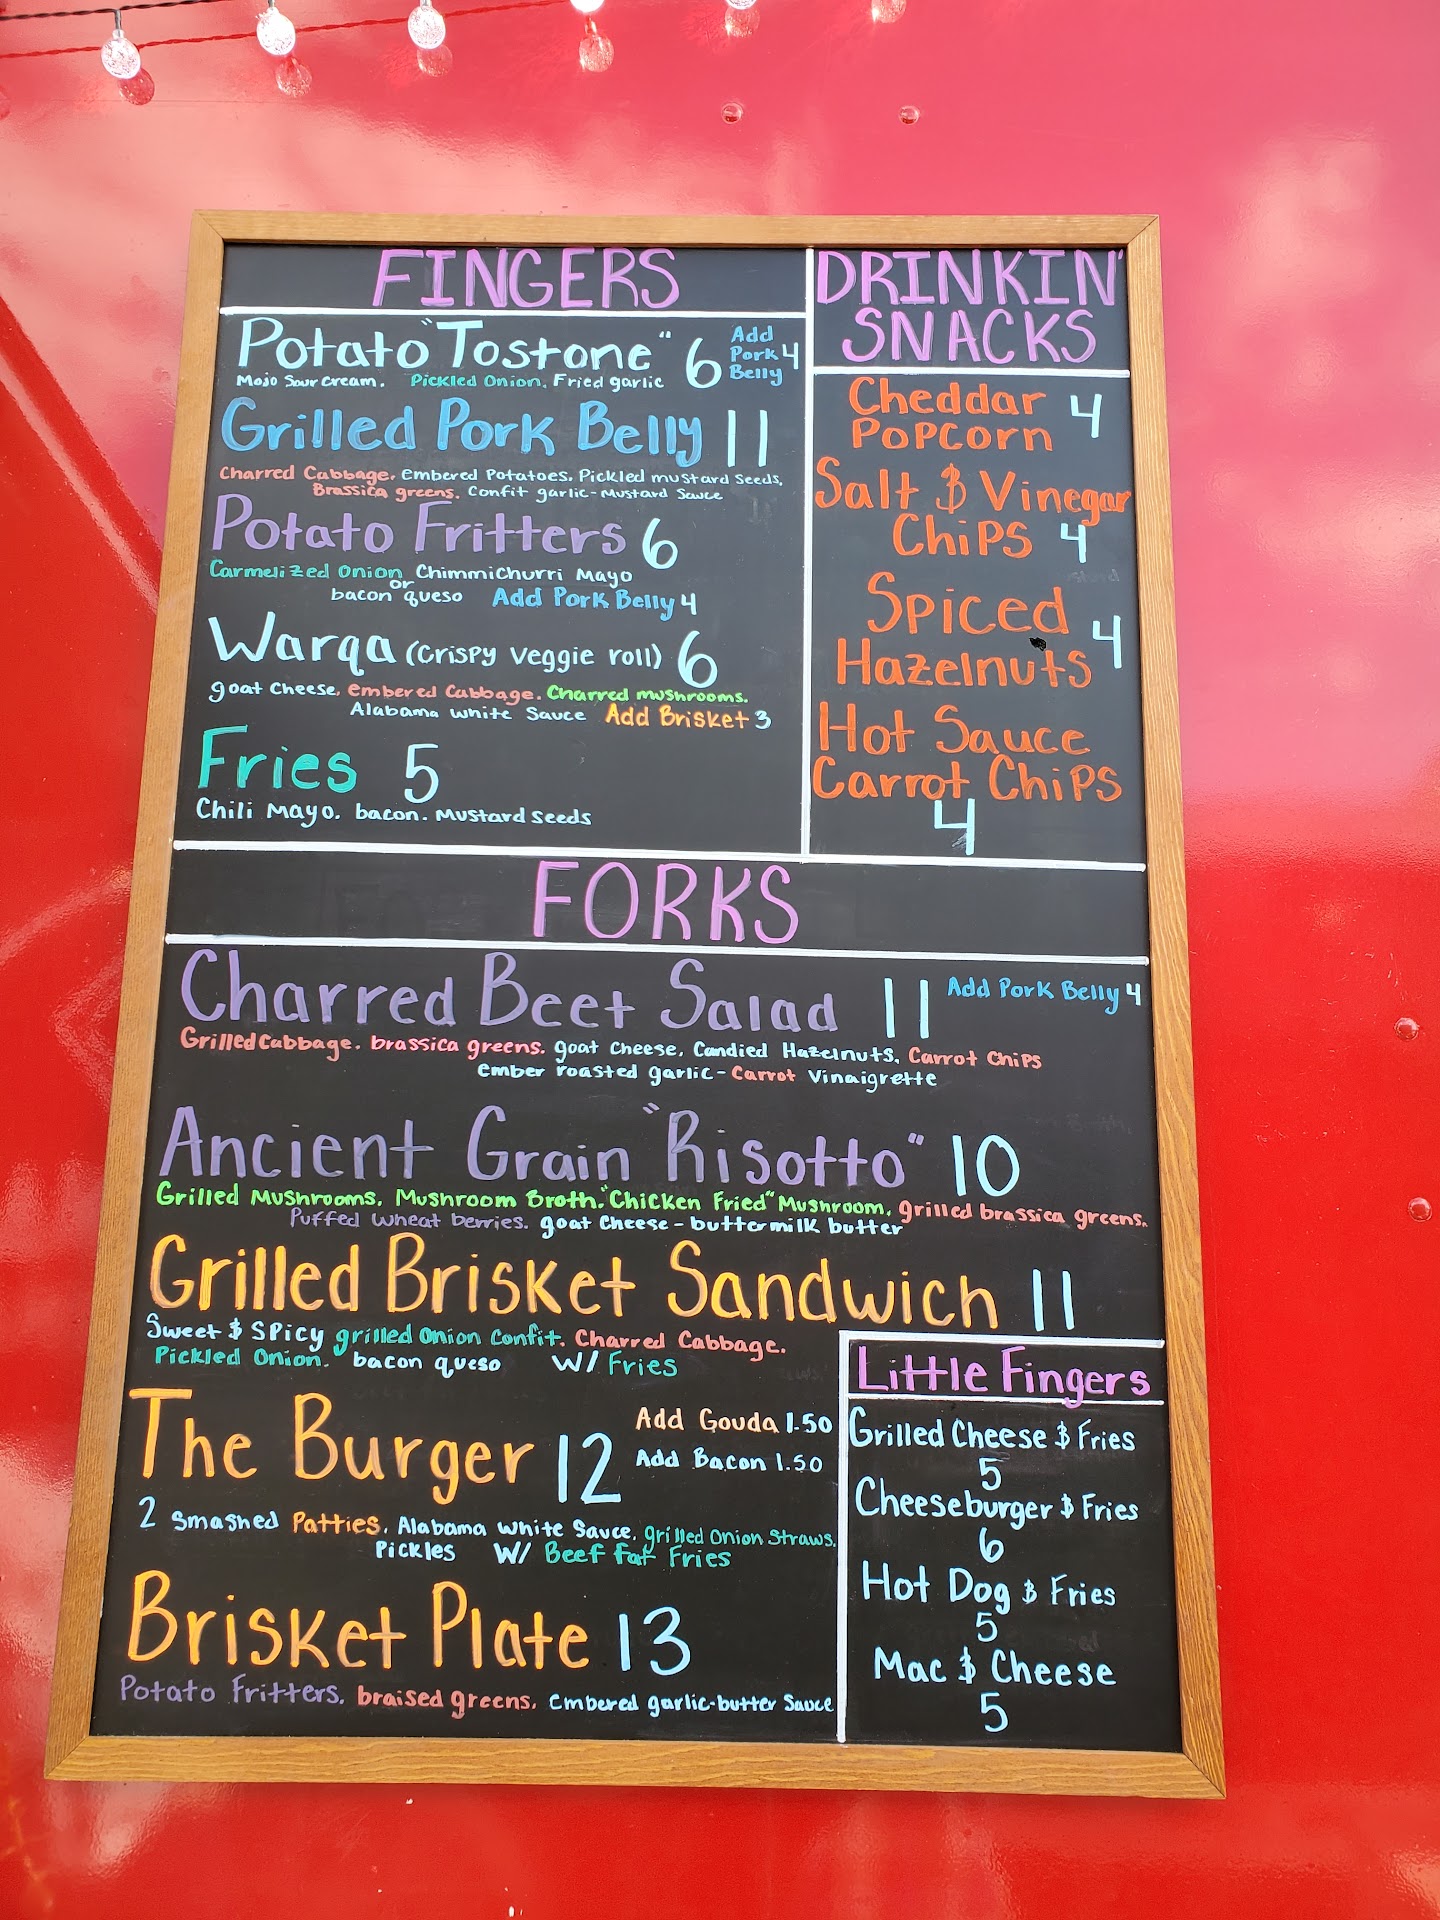 FINGERS
Potato "Tostone" 6 Add Pork Belly 4
Mojo Sour cream. Pickled Onion. Fried garlic
Grilled Pork Belly 11
Charred Cabbage. Embered Potatoes. Pickled mustard seeds,
Brassica greens. Confit garlic-Mustard Sauce
Potato Fritters 6
Carmelized Onion Chimmichurri Mayo
or
bacon queso Add Pork Belly 4
Warqa (Crispy Veggie roll) 6
goat Cheese. embered Cabbage. Charred mushrooms.
Alabama White Sauce Add Brisket 3
Fries 5
Chili Mayo. bacon. Mustard seeds
DRINKIN'
SNACKS
Cheddar
Popcorn 4
Salt & Vinegar
Chips 4
Spiced
Hazelnuts 4
Hot Sauce
Carrot Chips
4
FORKS
Charred Beet Salad 11 Add Pork Belly 4
Grilled Cabbage. brassica greens. goat Cheese, Candied Hazelnuts, Carrot Chips
ember roasted garlic-Carrot Vinaigrette
Ancient Grain "Risotto" 10
Grilled Mushrooms. Mushroom Broth. "Chicken Fried" Mushroom. grilled brassica greens.
Puffed wheat berries. goat Cheese-buttermilk butter
Grilled Brisket Sandwich 11
Sweet & Spicy grilled onion Confit. Charred Cabbage.
Pickled Onion. bacon queso W/ Fries
The Burger 12
Add Gouda 1.50
Add Bacon 1.50
2 Smashed Patties. Alabama White Sauce. grilled Onion Straws.
Pickles W/ Beef fat Fries
Brisket Plate 13
Potato Fritters. braised greens. Embered garlic-butter Sauce
Little Fingers
Grilled Cheese & Fries
5
Cheeseburger & Fries
6
Hot Dog & Fries
5
Mac & Cheese
5